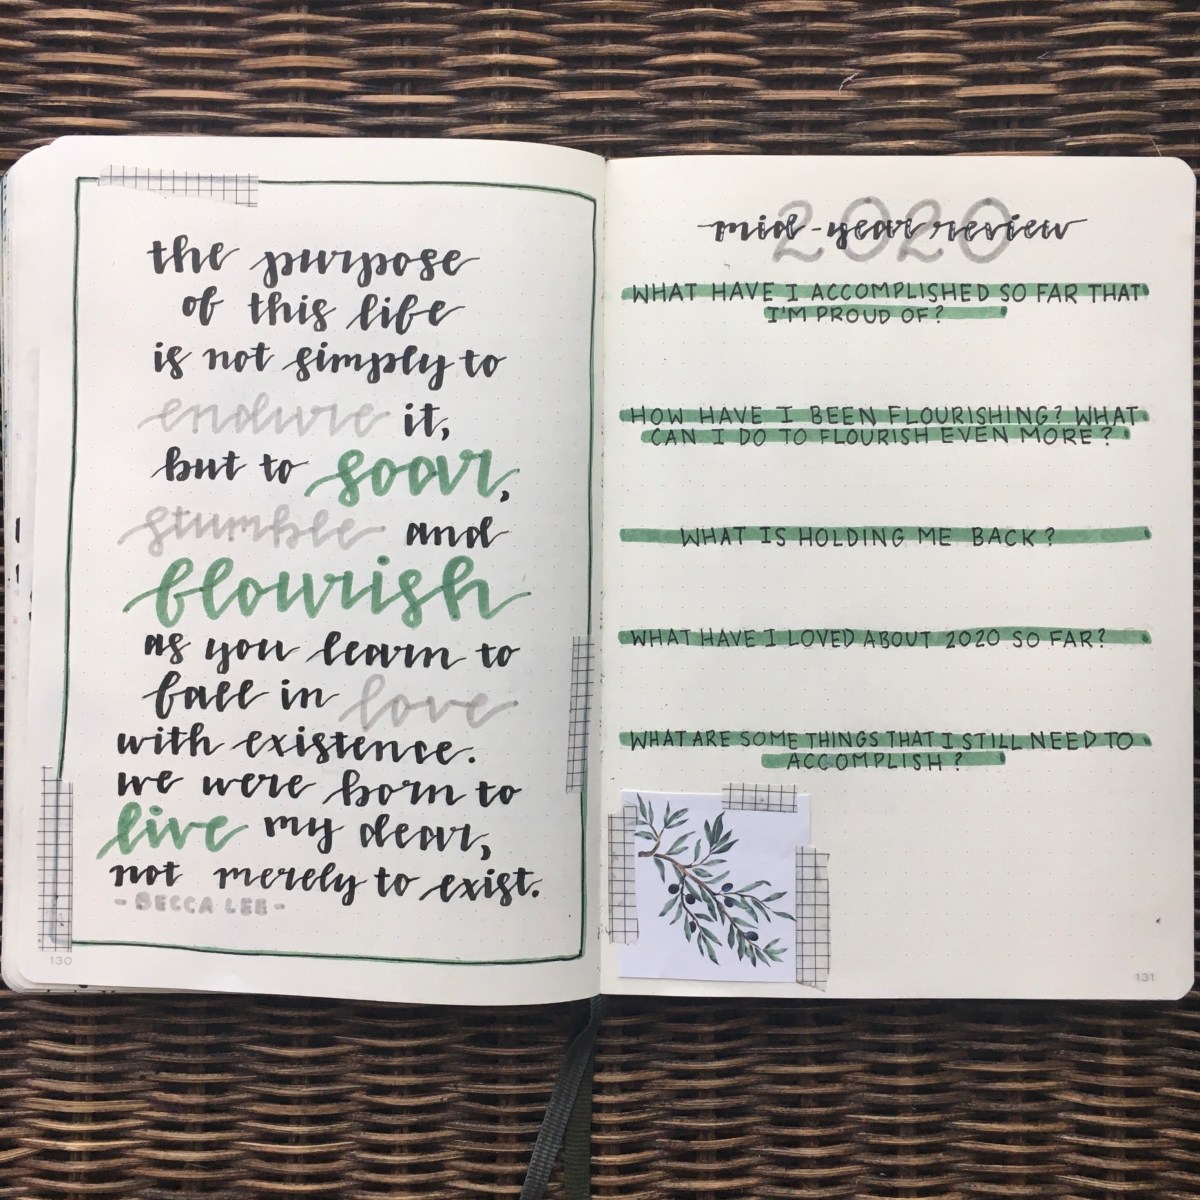 the purpose
of this life
is not simply to
endure it,
but to soar,
stumble and
flourish
as you learn to
fall in love
with existence.
we were born to
live my dear,
not merely to exist.
- BECCA LEE -
130
2020
mid-year review
WHAT HAVE I ACCOMPLISHED SO FAR THAT
I'M PROUD OF?
HOW HAVE I BEEN FLOURISHING? WHAT
CAN I DO TO FLOURISH EVEN MORE?
WHAT IS HOLDING ME BACK?
WHAT HAVE I LOVED ABOUT 2020 SO FAR?
WHAT ARE SOME THINGS THAT I STILL NEED TO
ACCOMPLISH?
131